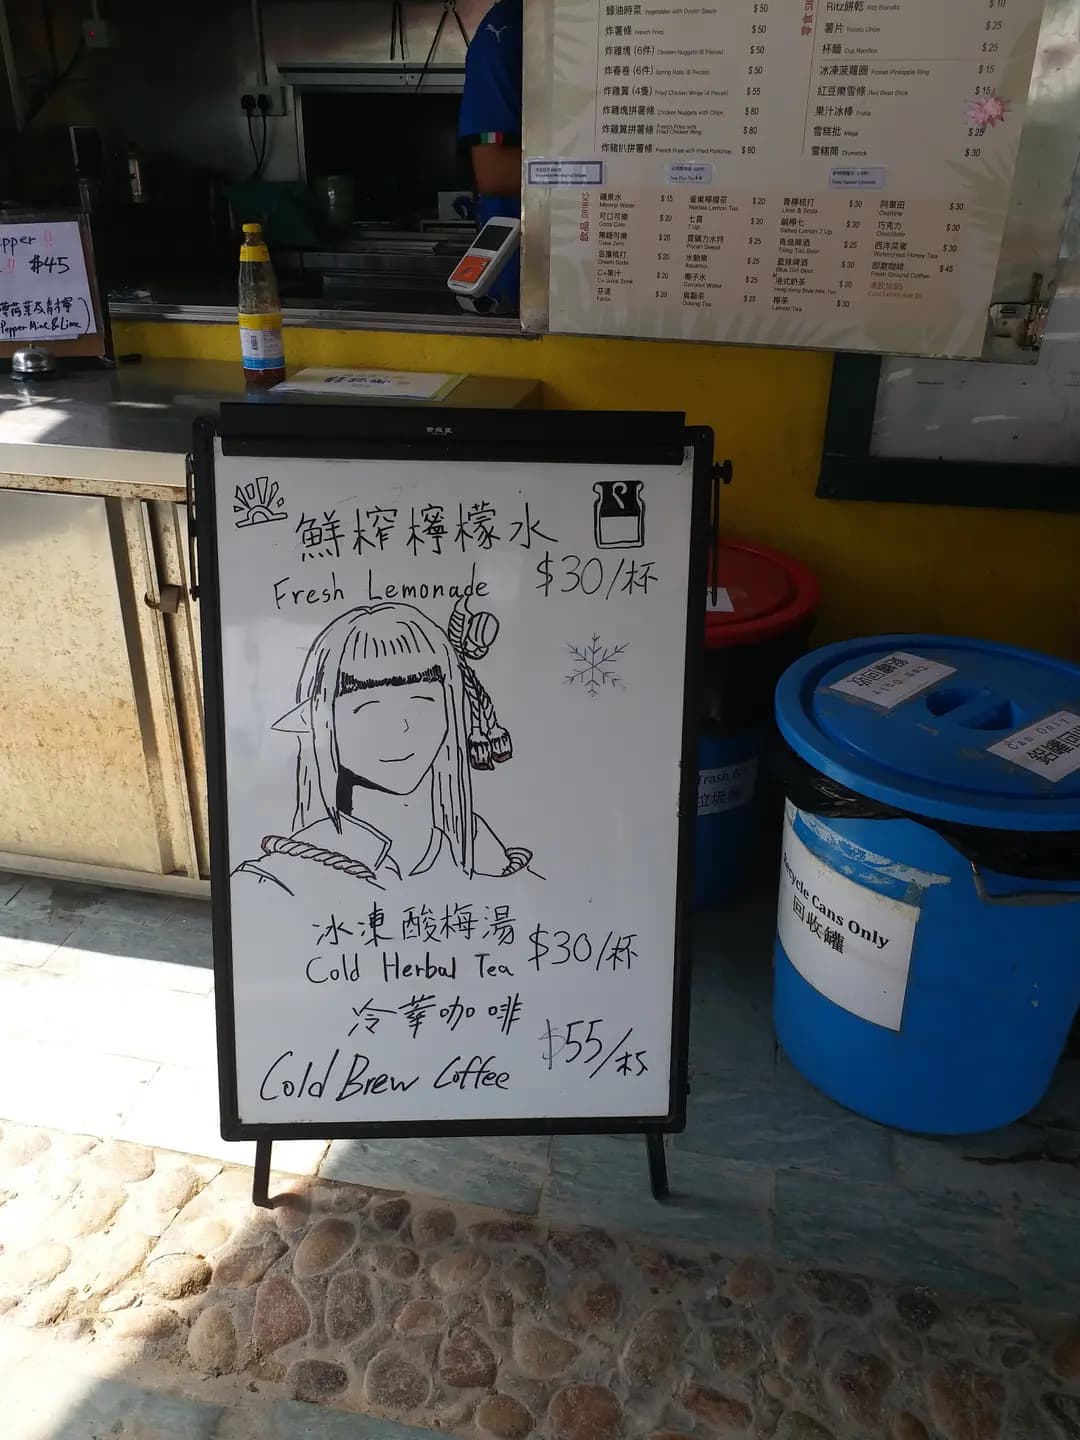 蠔油時菜 Vegetables with Oyster Sauce $50
炸薯條 French Fries $50
炸雞塊 (6件) Chicken Nuggets (6 Pieces) $50
炸春卷 (6件) Spring Rolls (6 Pieces) $50
炸雞翼 (4隻) Fried Chicken Wings (4 Pieces) $55
炸雞塊拼薯條 Chicken Nuggets with Chips $80
炸雞翼拼薯條 French Fries with Fried Chicken Wing $80
炸豬扒拼薯條 French Fries with Fried Porkchop $80
零食
Ritz餅乾 Ritz Biscuits $10
薯片 Potato Chips $25
杯麵 Cup Noodles $25
冰凍菠蘿圈 Frozen Pineapple Ring $15
紅豆樂雪條 Red Bean Stick $15
果汁冰棒 Fruttip
雪糕批 Mega $25
雪糕筒 Drumstick $30
飲品 DRINKS
礦泉水 $15
Mineral Water
可口可樂 $20
Coca Cola
無糖可樂 $20
Coke Zero
忌廉梳打 $20
Cream Soda
C+果汁 $20
C+ Juice Drink
芬達 $20
Fanta
雀巢檸檬茶 $20
Nestea Lemon Tea
七喜 $20
7 Up
寶礦力水特 $25
Pocari Sweat
水動樂 $25
Aquarius
椰子水 $25
Coconut Water
烏龍茶 $25
Oolong Tea
青檸梳打 $30
Lime & Soda
鹹檸七 $30
Salted Lemon 7 Up
青島啤酒 $25
Tsing Tao Beer
藍妹啤酒 $30
Blue Girl Beer
港式奶茶 $30
Hong Kong Style Milk Tea
檸茶 $30
Lemon Tea
阿華田 $30
Ovaltine
巧克力 $30
Chocolate
西洋菜蜜 $30
Watercress Honey Tea
即磨咖啡 $45
Fresh Ground Coffee
凍飲加$5
pper !!
!! $45
薄荷葉及青檸
Pepper Mint & Lime
鮮榨檸檬水
Fresh Lemonade $30/杯
冰凍酸梅湯 $30/杯
Cold Herbal Tea
冷萃咖啡 $55/杯
Cold Brew Coffee
Trash Bin
垃圾桶
鋁罐回收
Can Only
Can Only
Recycle Cans Only
回收罐